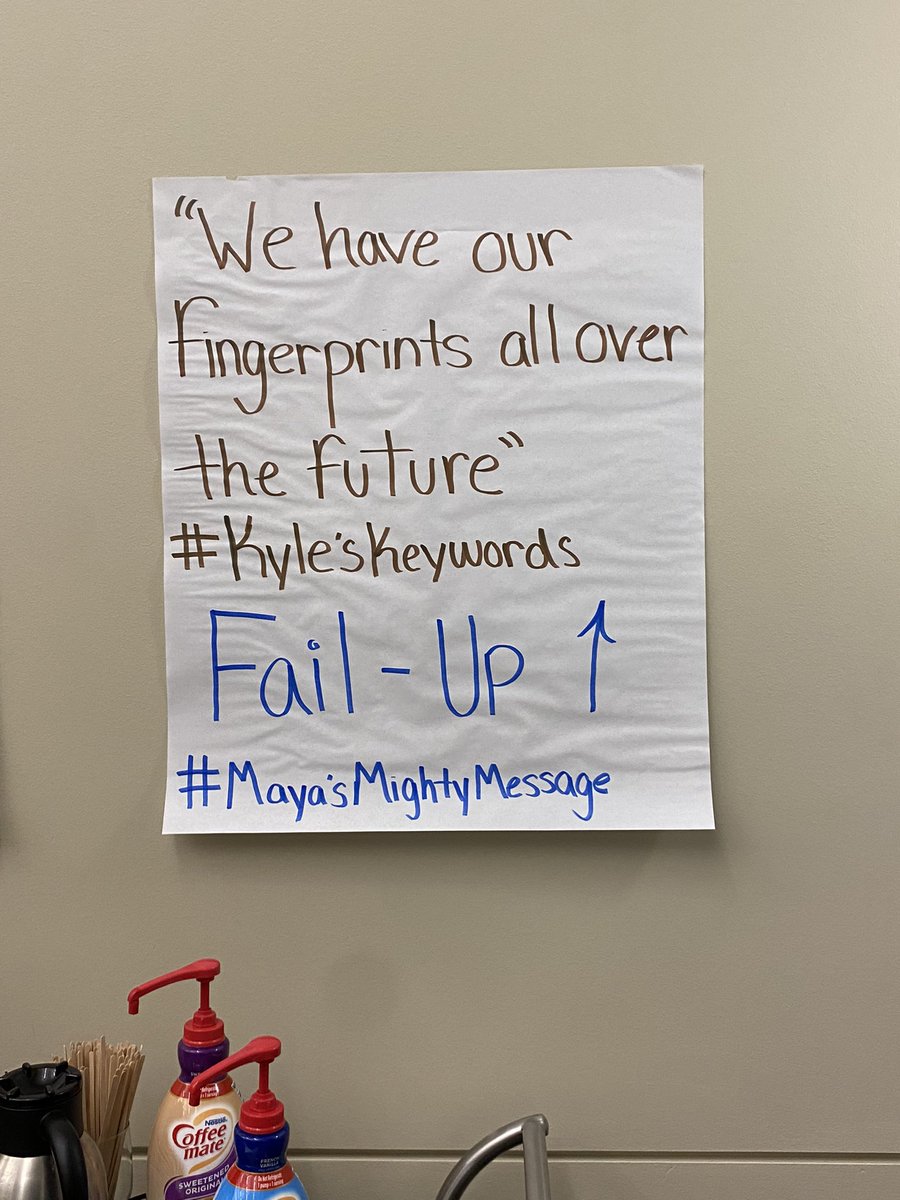 "We have our
fingerprints all over
the future"
#Kyle'sKeywords
Fail-Up ↑
#Maya'sMightyMessage
Nestle
Coffee
mate
SWEETENED
ORIGINAL
FRENCH
VANILLA